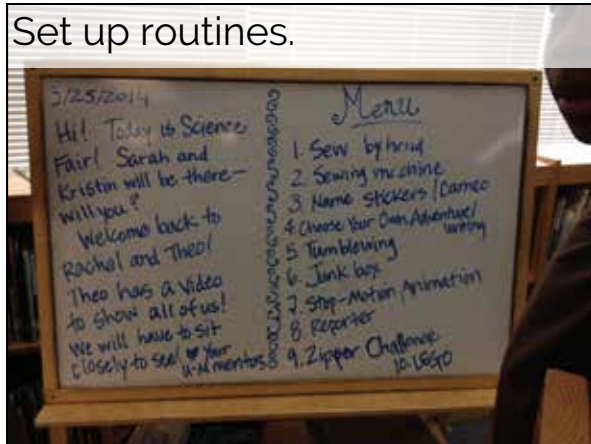 Set up routines.
3/25/2014
Hi! Today is Science
Fair! Sarah and
Kristin will be there-
will you?
Welcome back to
Rachel and Theo!
Theo has a video
to show all of us!
We will have to sit
closely to see! ♥ Your
U-M mentors
Menu
1. Sew by hand
2. Sewing machine
3. Name Stickers/Cameo
4. Choose Your Own Adventure/
writing
5. Tumblewing
6. Junk box
7. Stop-Motion Animation
8. Reporter
9. Zipper Challenge
10. LEGO